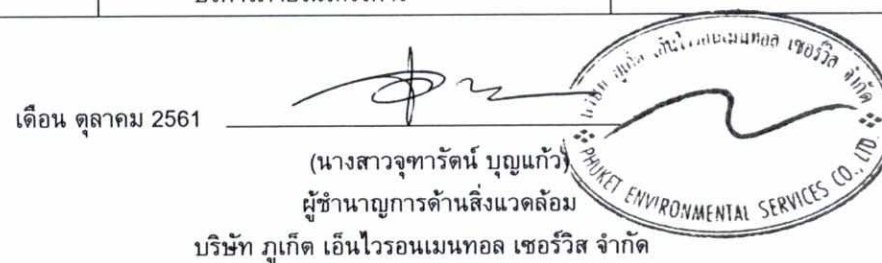 เดือน ตุลาคม 2561
(นางสาวจุฑารัตน์ บุญแก้ว)
ผู้ชำนาญการด้านสิ่งแวดล้อม
บริษัท ภูเก็ต เอ็นไวรอนเมนทอล เซอร์วิส จำกัด
บริษัท ภูเก็ต เอ็นไวรอนเมนทอล เซอร์วิส จำกัด
PHUKET ENVIRONMENTAL SERVICES CO., LTD.